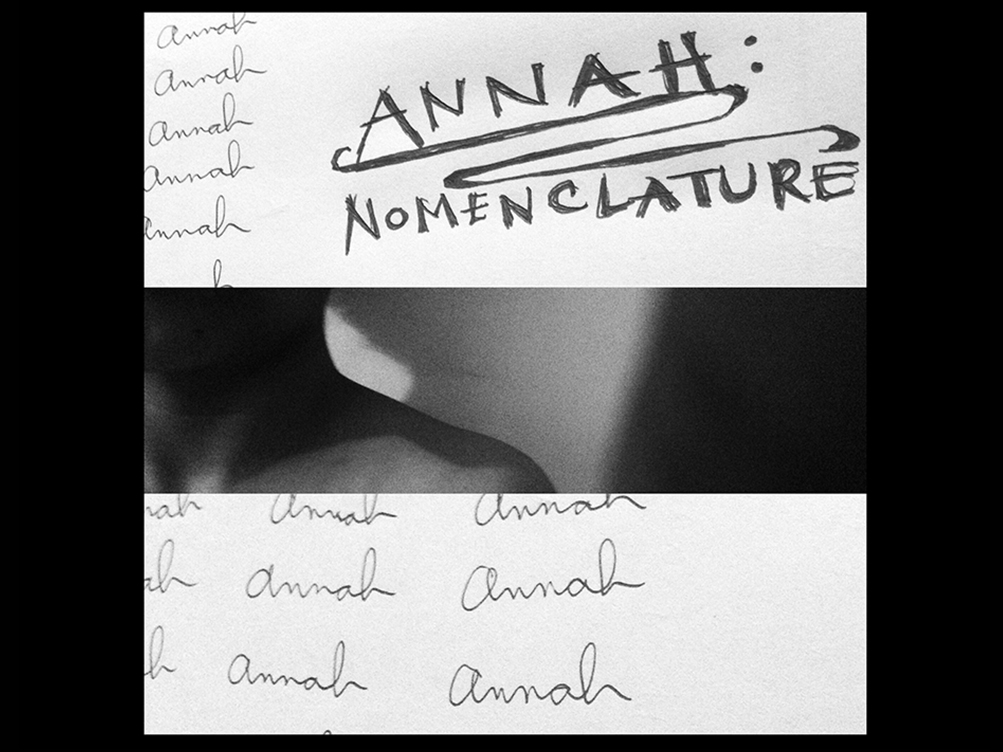 Annah
Annah
Annah
Annah
Annah
h
ANNAH:
NOMENCLATURE
nah Annah Annah
ah annah Annah
h annah Annah